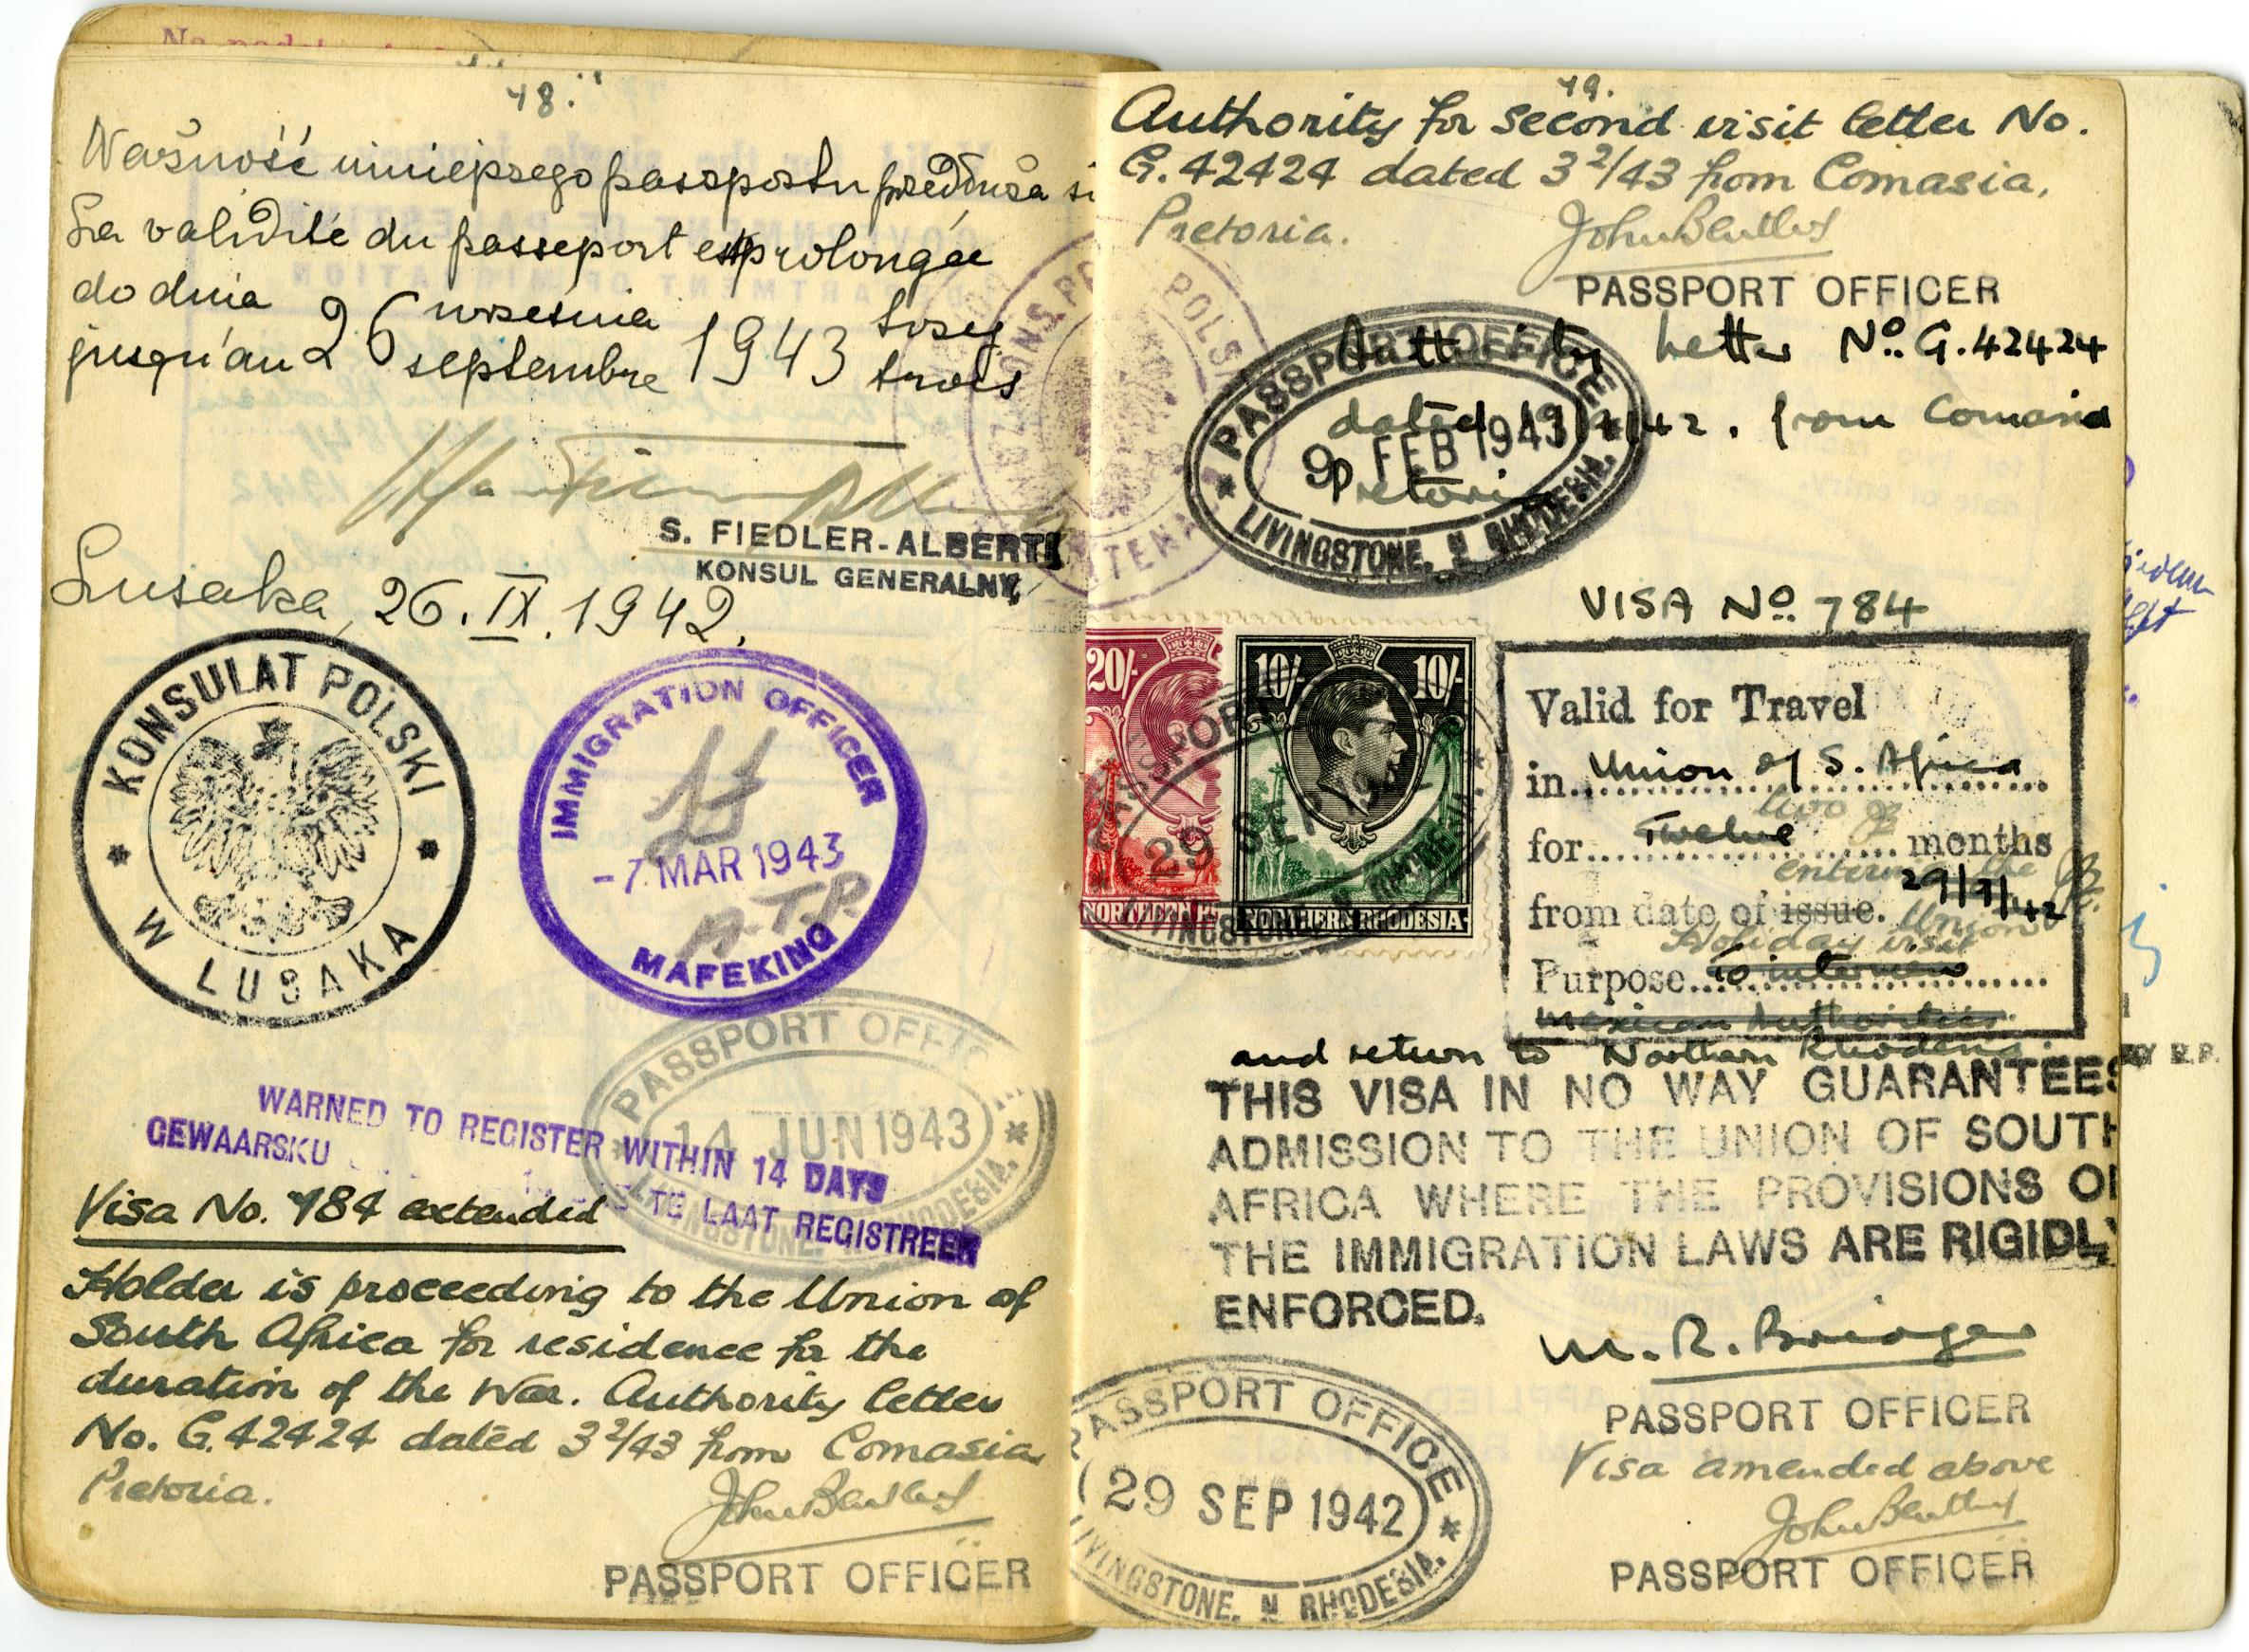 48.
Ważność niniejszego paszportu przedłuża si
La validité du passeport est prolongée
do dnia 26 września 1943 trzy
jusqu'au septembre trois
S. FIEDLER-ALBERTI
KONSUL GENERALNY
Lusaka, 26.IX.1942.
KONSULAT POLSKI
W LUSAKA
IMMIGRATION OFFICER
-7 MAR 1943
A.T.P.
MAFEKING
PASSPORT OFFICE
14 JUN 1943
LIVINGSTONE, N RHODESIA.
WARNED TO REGISTER WITHIN 14 DAYS
GEWAARSKU
TE LAAT REGISTREER
Visa No. 784 extended
Holder is proceeding to the Union of
South Africa for residence for the
duration of the War. Authority letter
No. G.42424 dated 3 2/43 from Comasia
Pretoria.
John Bentley
PASSPORT OFFICER
49.
Authority for second visit letter No.
G.42424 dated 3 2/43 from Comasia,
Pretoria.
John Bentley
PASSPORT OFFICER
Authority Letter No. G.42424
dated /42. from Comasia
Pretoria
PASSPORT OFFICE
9 FEB 1943
LIVINGSTONE, N RHODESIA.
VISA No. 784
20/-
NORTHERN R
10/- 10/-
NORTHERN RHODESIA
PASSPORT
29 SEP
LIVINGSTONE
Valid for Travel
in Union of S. Africa
two
for Twelve months
entering the
from date of issue. 29/9/42
Union
Holiday visit
Purpose To interview
Mexican Authorities.
and return to Northern Rhodesia.
THIS VISA IN NO WAY GUARANTEES
ADMISSION TO THE UNION OF SOUTH
AFRICA WHERE THE PROVISIONS OF
THE IMMIGRATION LAWS ARE RIGIDLY
ENFORCED.
M. R. Bridger
PASSPORT OFFICER
Visa amended above
John Bentley
PASSPORT OFFICER
PASSPORT OFFICE
29 SEP 1942
LIVINGSTONE, N RHODESIA.